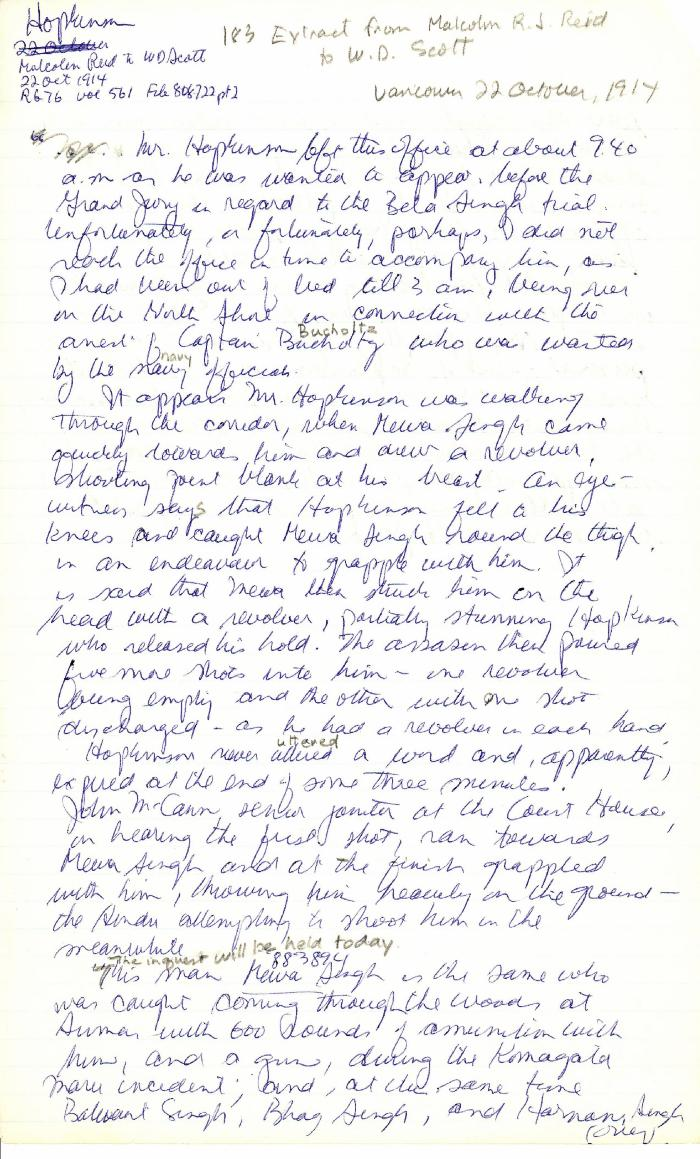 Hopkinson
22 October
Malcolm Reid to WD Scott
22 Oct 1914
RG76 vol 561 File 808722 pt2
183 Extract from Malcolm R.J. Reid
to W.D. Scott
Vancouver 22 October, 1914
"... Mr. Hopkinson left this office at about 9.40
a.m as he was wanted to appear before the
Grand Jury in regard to the Bela Singh trial.
Unfortunately, or fortunately, perhaps, I did not
reach the office in time to accompany him, as
I had been out of bed till 3 am, being over
on the North Shore in connection with the
Bucholtz
arrest of Captain Bucholtz who was wanted
navy
by the navy officials.
It appears Mr. Hopkinson was walking
through the corridor, when Mewa Singh came
quickly towards him and drew a revolver,
shooting point blank at his breast - An eye-
witness says that Hopkinson fell to his
knees and caught Mewa Singh around the thigh
in an endeavour to grapple with him. It
is said that Mewa then struck him on the
head with a revolver, partially stunning Hopkinson
who released his hold. The assasin then poured
five more shots into him - one revolver
being empty and the other with one shot
discharged - as he had a revolver in each hand
uttered
Hopkinson never uttered a word and, apparently,
expired at the end of some three minutes.
John McCann, senior janitor at the Court House,
on hearing the first shot, ran towards
Mewa Singh and at the finish grappled
with him, throwing him heavily on the ground -
the Hindu attempting to shoot him in the
meanwhile
The inquest will be held today.
883894
This man Mewa Singh is the same who
was caught coming through the woods at
Sumas with 600 rounds of amunition with
him, and a gun, during the Komagata
Maru incident; and, at the same time
Balwant Singh, Bhag Singh, and Harnam Singh
(over)